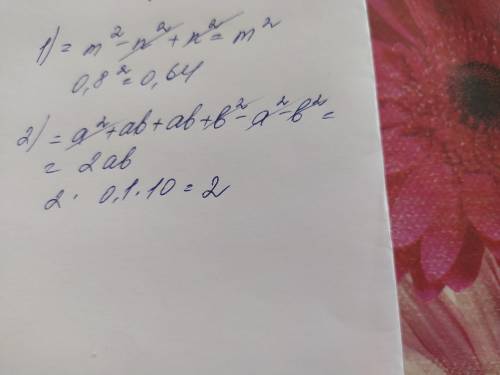 1) = m² - n² + n² = m²
0,8² = 0,64
2) = a² + ab + ab + b² - a² - b² =
= 2ab
2 · 0,1 · 10 = 2